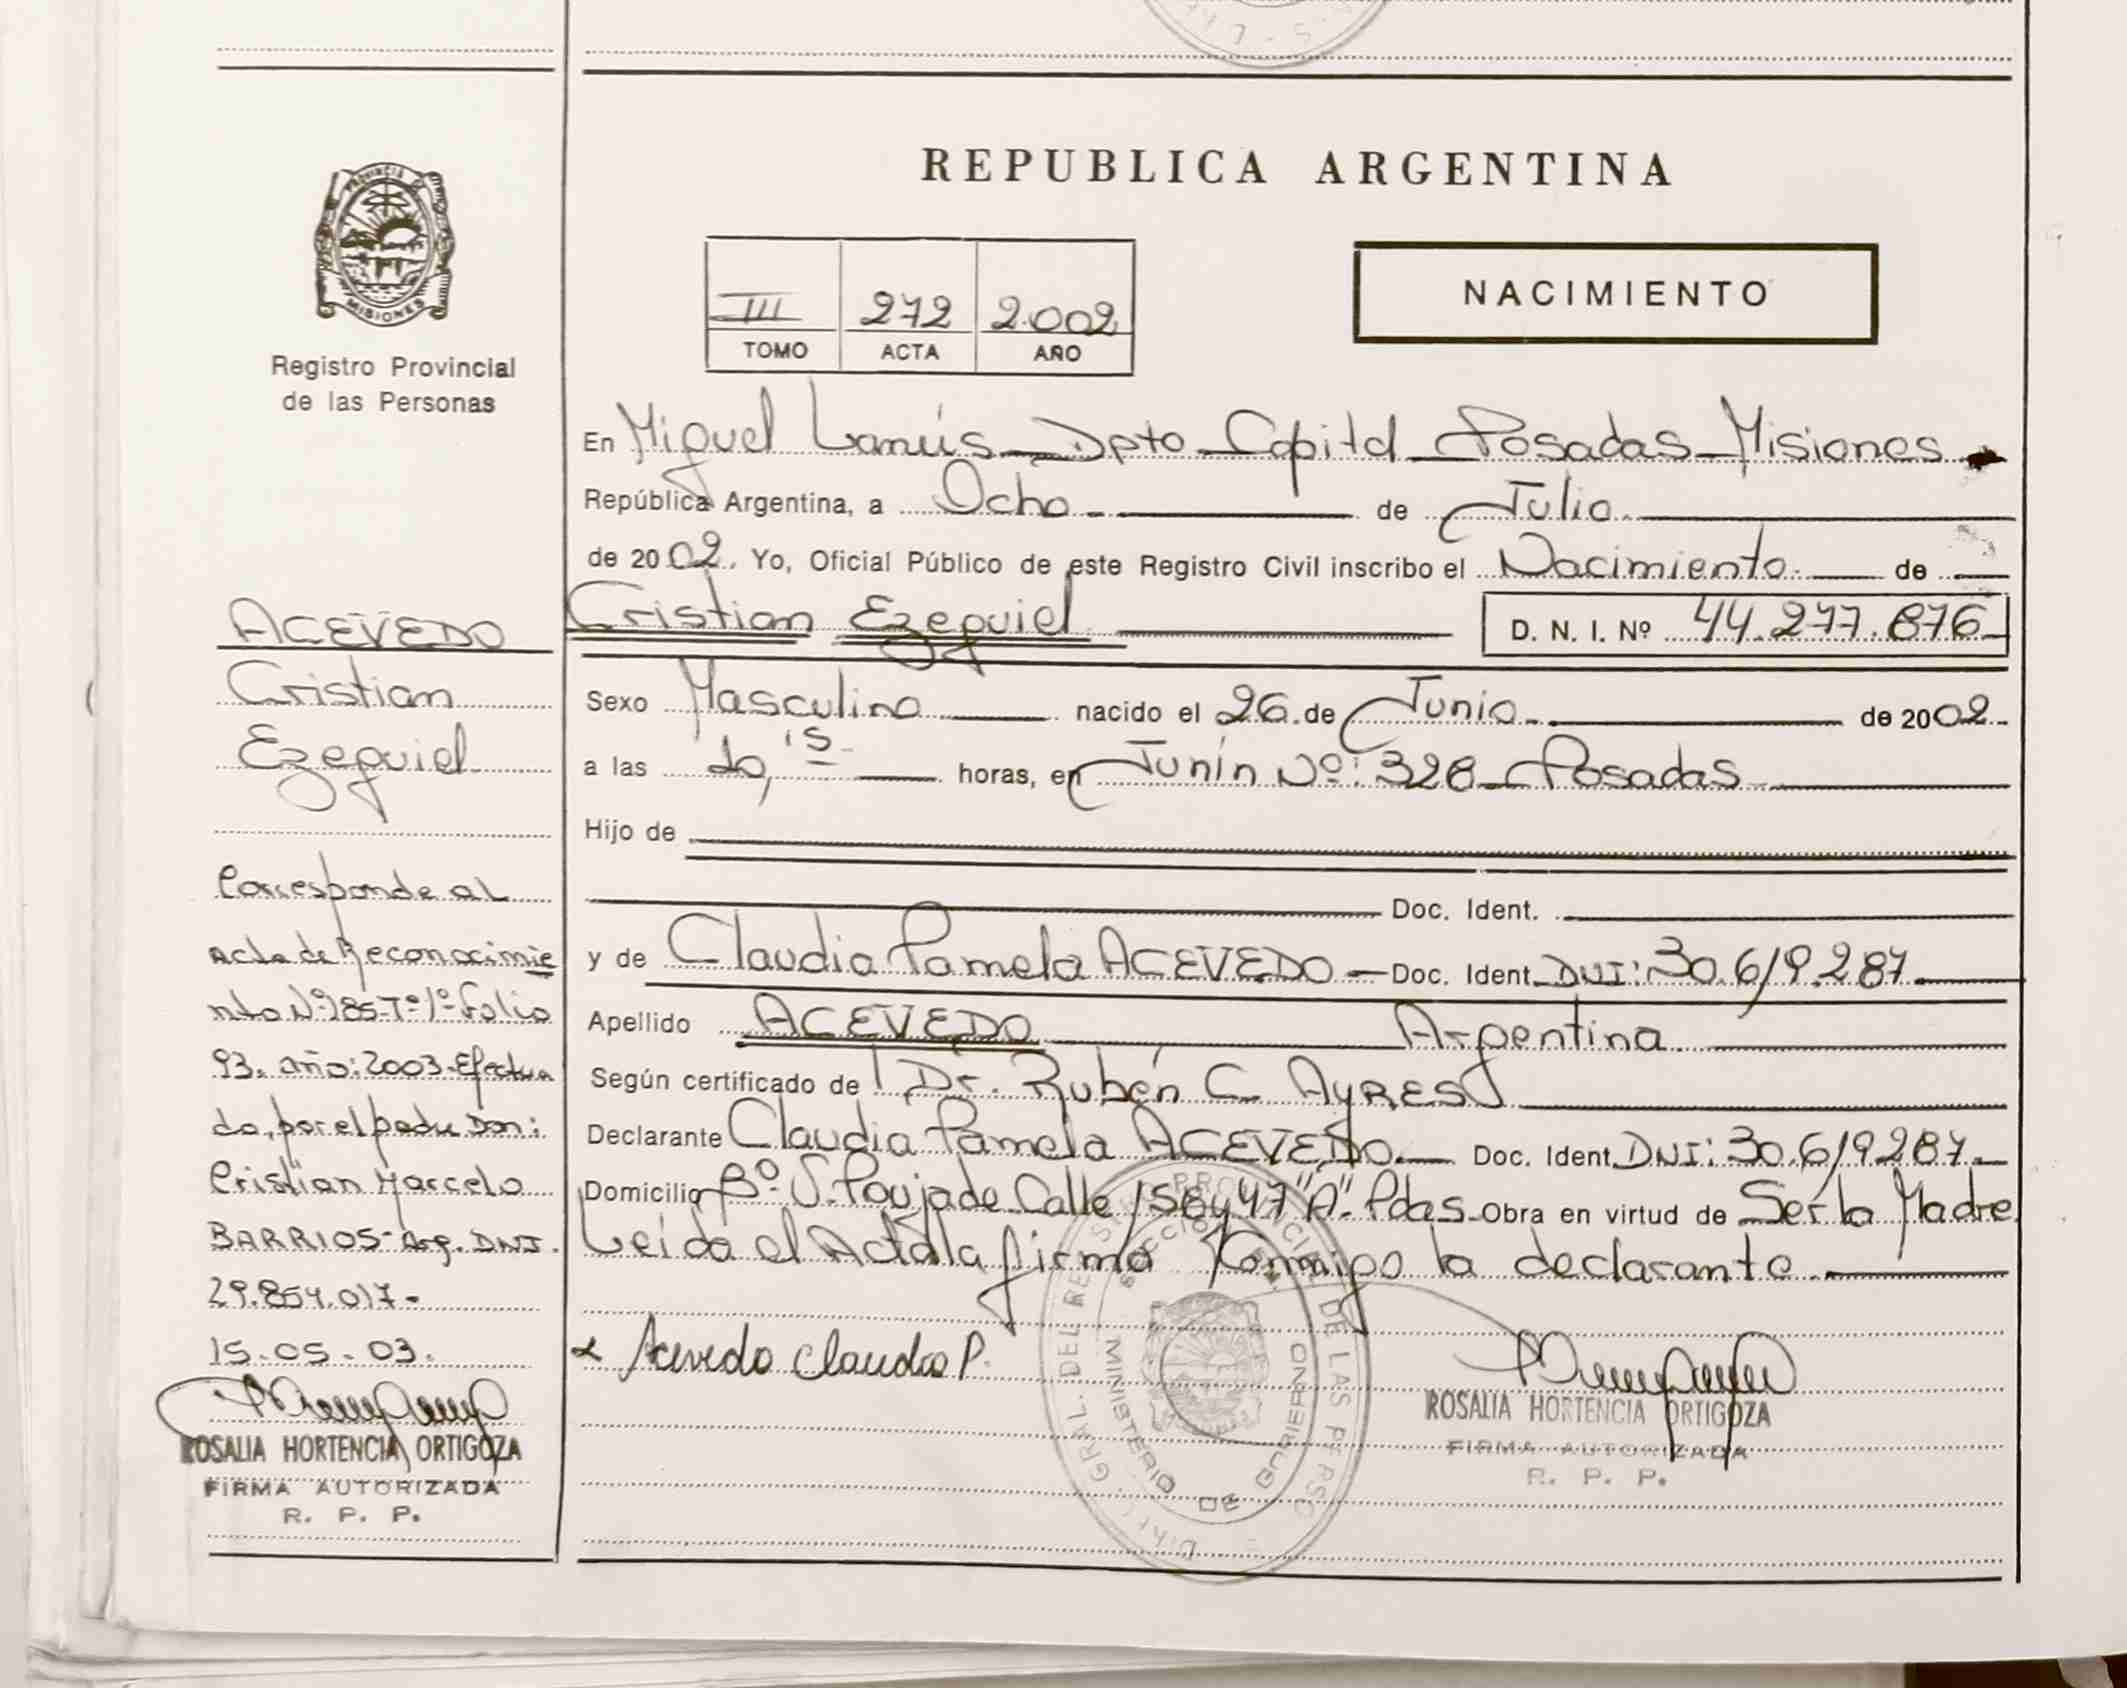 REPUBLICA ARGENTINA
PROVINCIA DE
MISIONES
Registro Provincial
de las Personas
III 272 2.002
TOMO ACTA AÑO
NACIMIENTO
En Miguel Lanús Dpto Capital Posadas Misiones
República Argentina, a Ocho de Julio
de 2002. Yo, Oficial Público de este Registro Civil inscribo el Nacimiento de
Cristian Ezequiel D. N. I. Nº 44.277.876
Sexo Masculino nacido el 26 de Junio de 2002
a las 10,15 horas, en Junín Nº: 328 Posadas
Hijo de
Doc. Ident.
y de Claudia Pamela ACEVEDO Doc. Ident. DNI: 30.619.287
Apellido ACEVEDO Argentina
Según certificado de Dr. Rubén C. AYRES
Declarante Claudia Pamela ACEVEDO Doc. Ident. DNI: 30.619287
Domicilio Bº S. Poujade Calle 158 y 47 "A" Pdas Obra en virtud de Ser la Madre
Leída el Acta la firma Conmigo la declarante
Acevedo Claudia P.
ROSALIA HORTENCIA ORTIGOZA
FIRMA AUTORIZADA
R. P. P.
ACEVEDO
Cristian
Ezequiel
Corresponde al
Acta de Reconocimie
nto Nº 285-Tº 1º Folio
93. año: 2003-Efectua
do, por el padre Don:
Cristian Marcelo
BARRIOS-Arg. DNI.
29.854.017-
15-05-03.
ROSALIA HORTENCIA ORTIGOZA
FIRMA AUTORIZADA
R. P. P.
GRAL. DEL REGISTRO PROVINCIAL DE LAS PERSO
MINISTERIO DE GOBIERNO